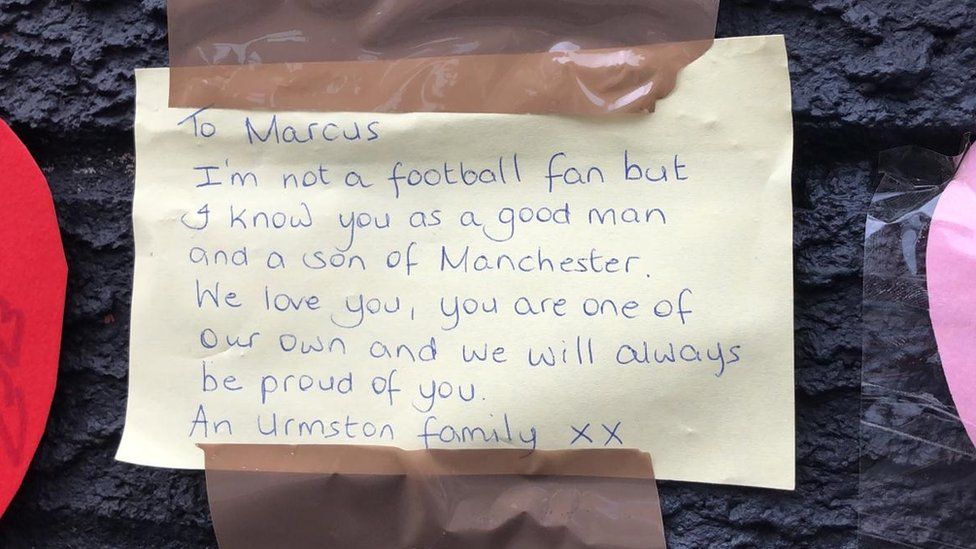 To Marcus
I'm not a football fan but
I know you as a good man
and a son of Manchester.
We love you, you are one of
our own and we will always
be proud of you.
An Urmston family xx